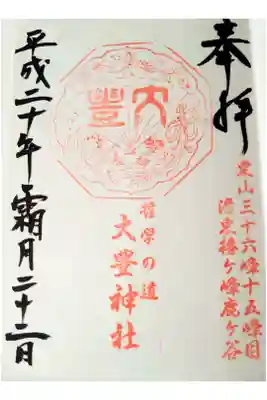 奉拝
東山三十六峰十五峰目
洛東椿ヶ峰鹿ヶ谷
大豊
哲学の道
大豊神社
平成二十年霜月二十二日